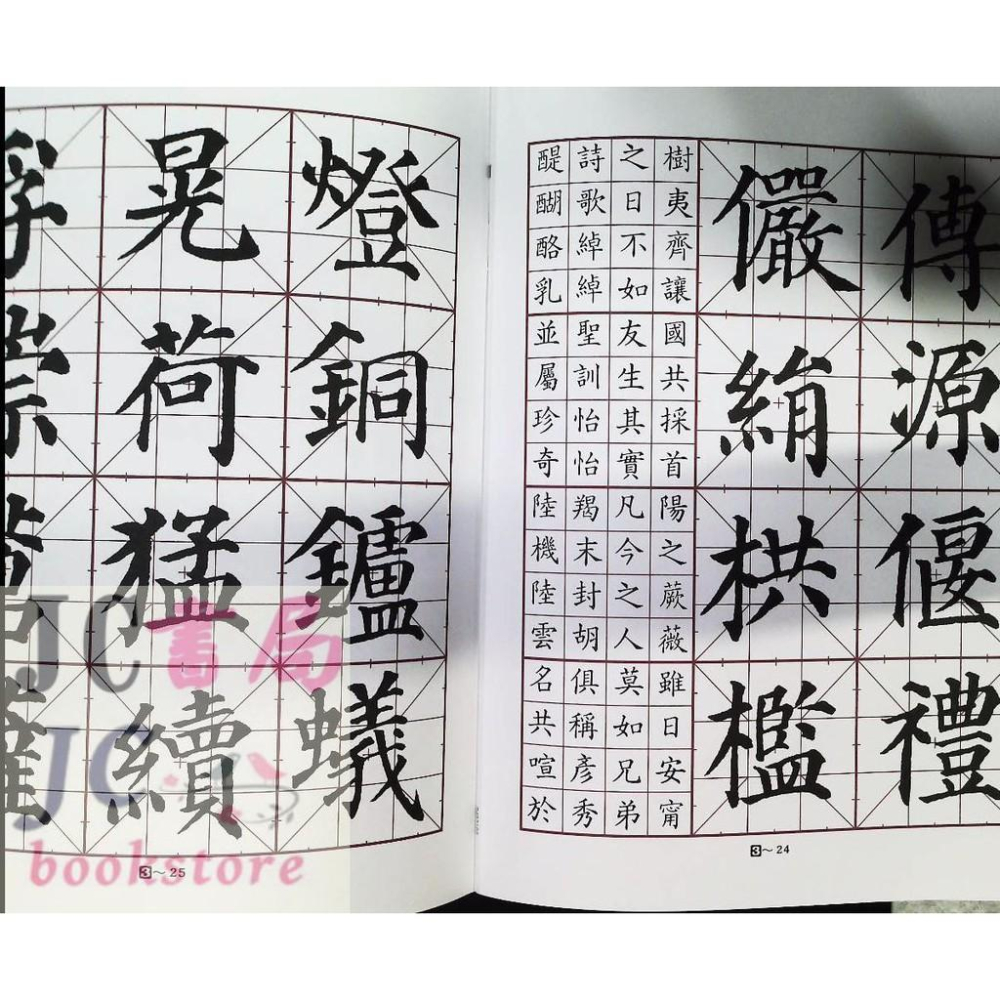 傳源偃禮
儼絹栱檻
樹夷齊讓國共採首陽之蕨薇雖日安甯
之日不如友生其實凡今之人莫如兄弟
詩歌綽綽聖訓怡怡羯末封胡俱稱彥秀
醍醐酪乳並屬珍奇陸機陸雲名共喧於
3～24
燈銅鑪蟻
晃荷猛續
3～25
JC書局
JC
bookstore